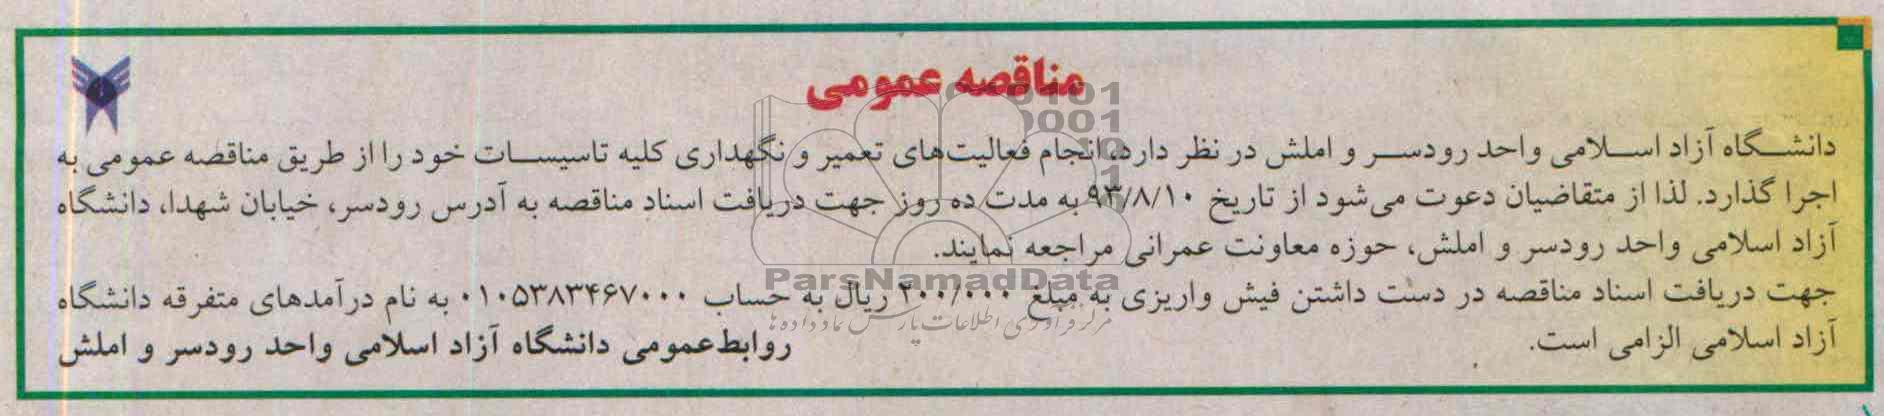 مناقصه عمومی
دانشگاه آزاد اسلامی واحد رودسر و املش در نظر دارد، انجام فعالیت‌های تعمیر و نگهداری کلیه تاسیسات خود را از طریق مناقصه عمومی به
اجرا گذارد. لذا از متقاضیان دعوت می‌شود از تاریخ ۹۳/۸/۱۰ به مدت ده روز جهت دریافت اسناد مناقصه به آدرس رودسر، خیابان شهدا، دانشگاه
آزاد اسلامی واحد رودسر و املش، حوزه معاونت عمرانی مراجعه نمایند.
جهت دریافت اسناد مناقصه در دست داشتن فیش واریزی به مبلغ ۲۰۰/۰۰۰ ریال به حساب ۰۱۰۵۳۸۳۴۶۷۰۰۰ به نام درآمدهای متفرقه دانشگاه
آزاد اسلامی الزامی است.
روابط‌عمومی دانشگاه آزاد اسلامی واحد رودسر و املش
ParsNamadData
مرکز فرآوری اطلاعات پارس نماد داده ها